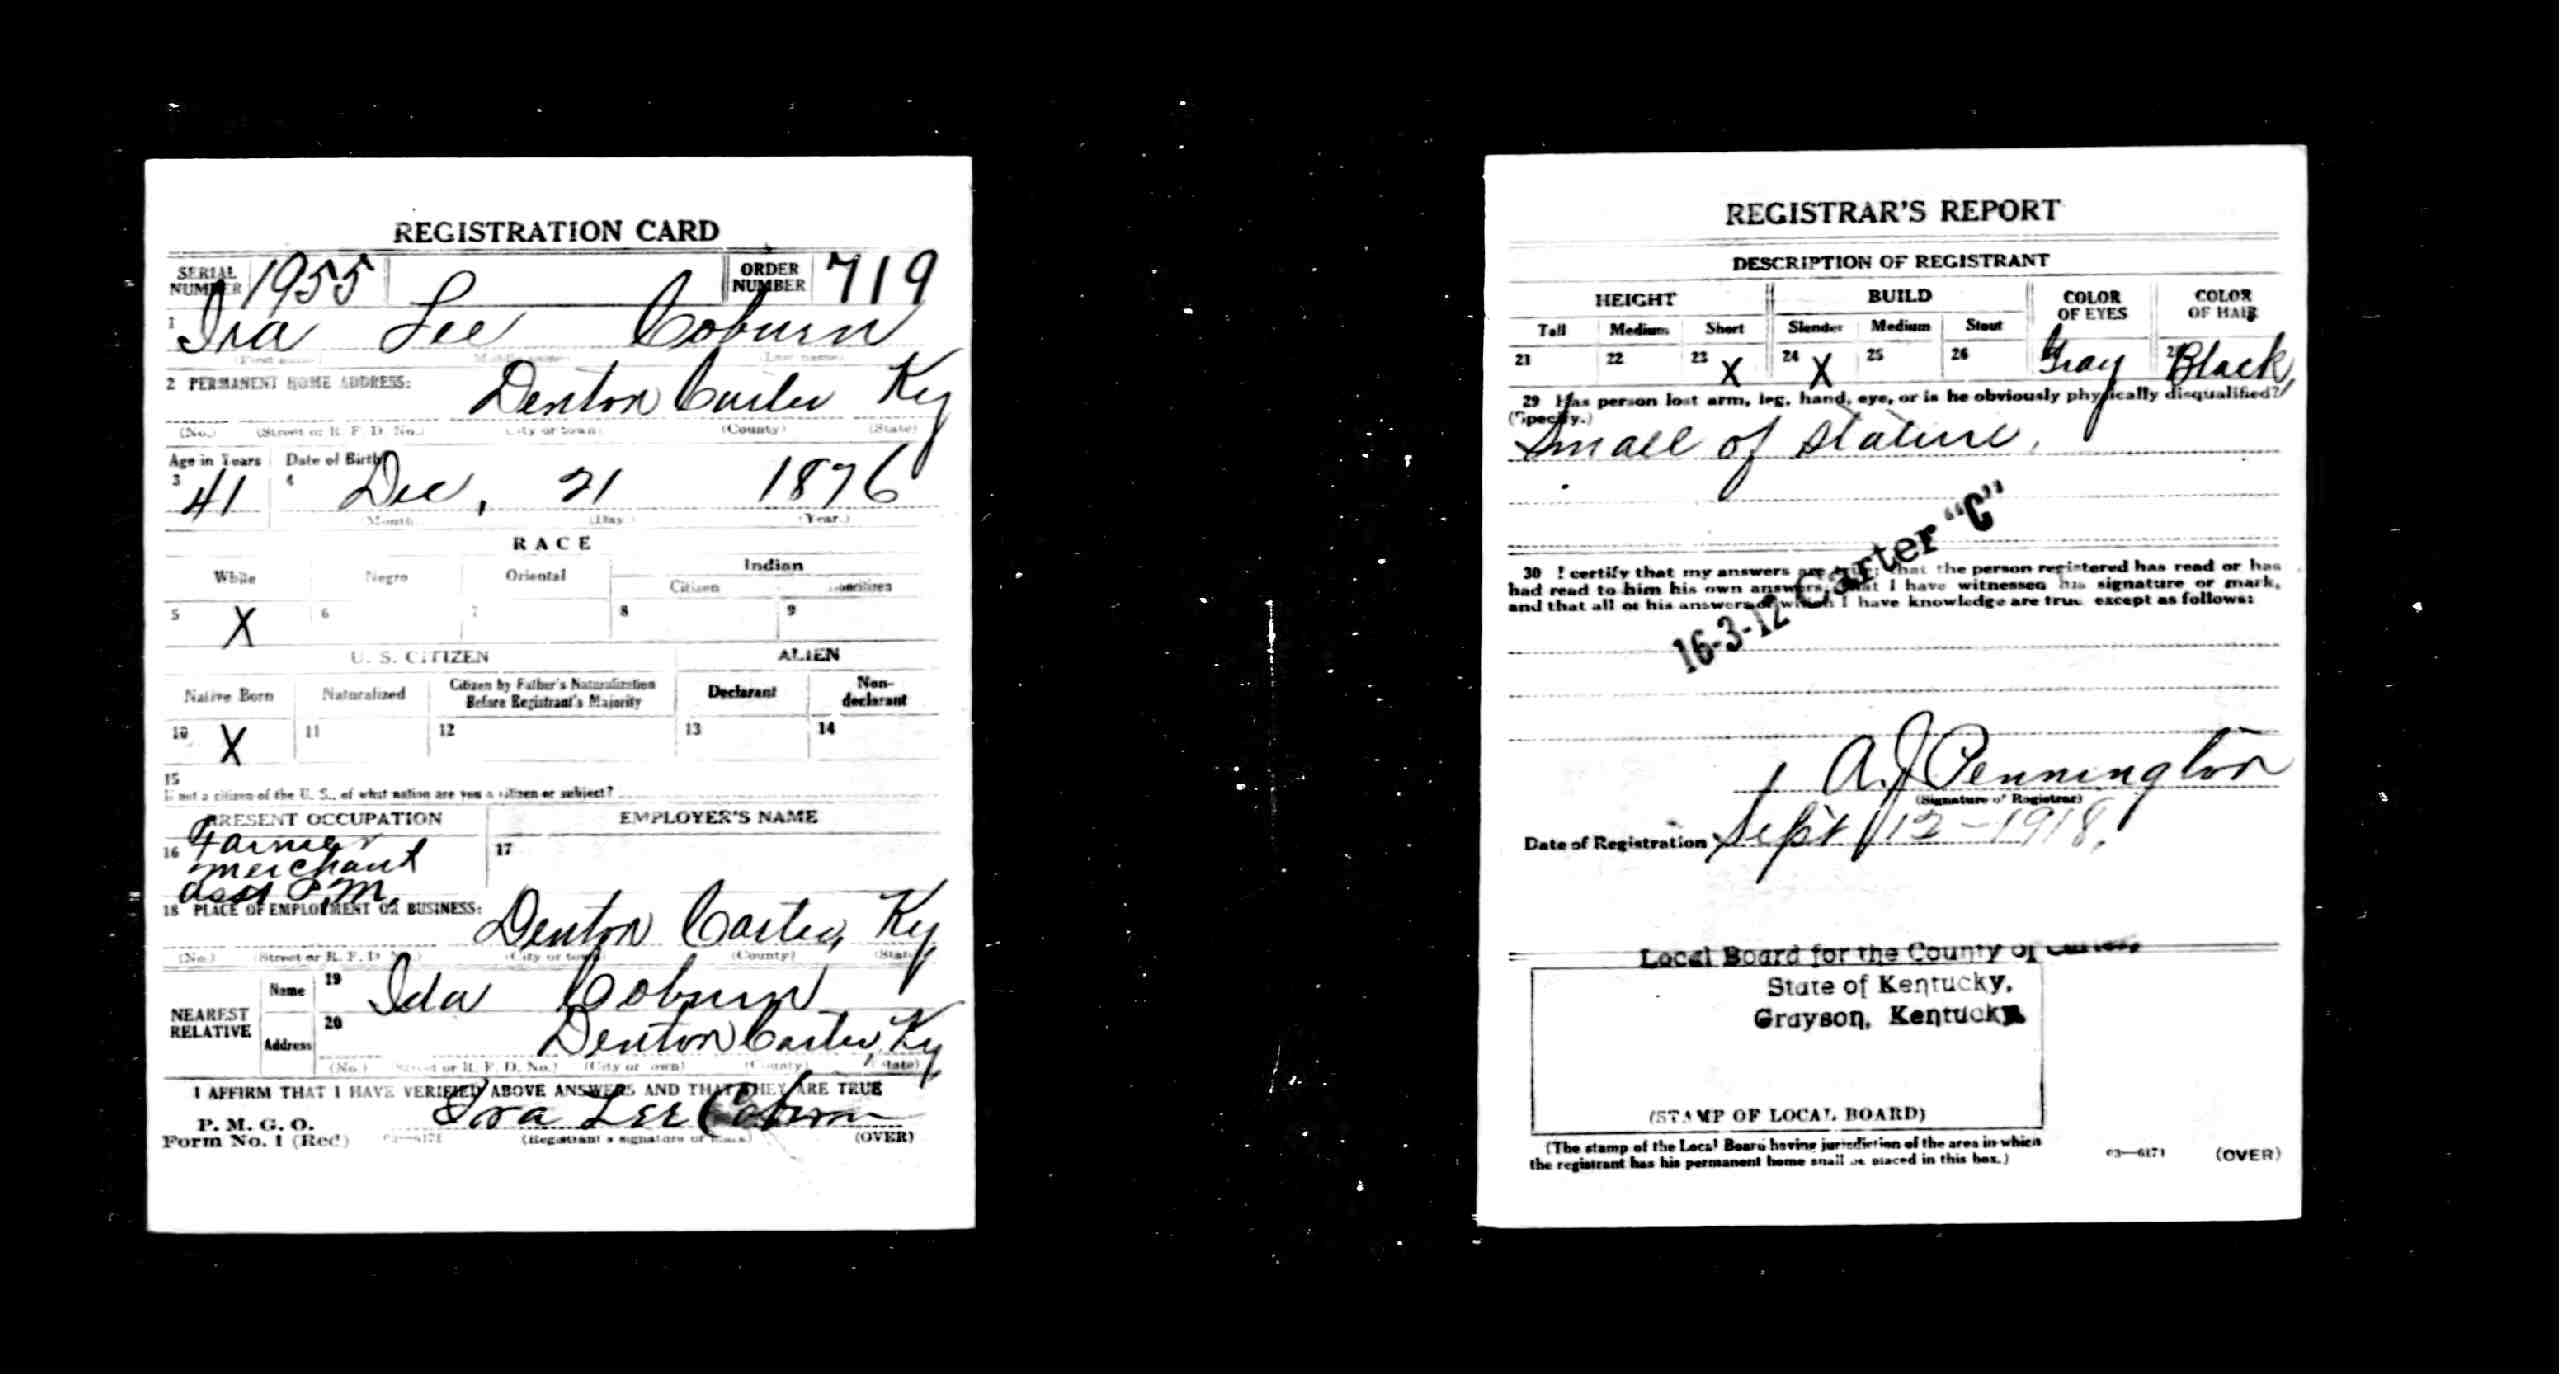 REGISTRATION CARD
SERIAL NUMBER 1955 ORDER NUMBER 719
1 Ira Lee Coburn
(First name) (Middle name) (Last name)
2 PERMANENT HOME ADDRESS:
Denton Carter Ky
(No.) (Street or R. F. D. No.) (City or town) (County) (State)
Age in Years Date of Birth
3 41 4 Dec, 21 1876
(Month.) (Day.) (Year.)
RACE
White Negro Oriental Indian
Citizen Noncitizen
5 X 6 7 8 9
U. S. CITIZEN ALIEN
Native Born Naturalized Citizen by Father's Naturalization Before Registrant's Majority Declarant Non-declarant
10 X 11 12 13 14
15
If not a citizen of the U. S., of what nation are you a citizen or subject?
PRESENT OCCUPATION EMPLOYER'S NAME
16 Farmer 17
merchant
asst P.M.
18 PLACE OF EMPLOYMENT OR BUSINESS:
Denton Carter, Ky
(No.) (Street or R. F. D. No.) (City or town) (County) (State)
NEAREST RELATIVE
Name 19 Ida Coburn
Address 20 Denton Carter, Ky
(No.) (Street or R. F. D. No.) (City or town) (County) (State)
I AFFIRM THAT I HAVE VERIFIED ABOVE ANSWERS AND THAT THEY ARE TRUE
P. M. G. O.
Form No. 1 (Red) 03—6171 Ira Lee Coburn
(Registrant's signature or mark) (OVER)
REGISTRAR'S REPORT
DESCRIPTION OF REGISTRANT
HEIGHT BUILD COLOR OF EYES COLOR OF HAIR
Tall Medium Short Slender Medium Stout
21 22 23 X 24 X 25 26 Gray Black
29 Has person lost arm, leg, hand, eye, or is he obviously physically disqualified?
(Specify.)
Small of stature.
16-3-12 Carter "C"
30 I certify that my answers are true; that the person registered has read or has
had read to him his own answers; that I have witnessed his signature or mark,
and that all of his answers of which I have knowledge are true except as follows:
A. J. Pennington
(Signature of Registrar)
Date of Registration Sept 12 - 1918.
Local Board for the County of Carter,
State of Kentucky,
Grayson, Kentucky
(STAMP OF LOCAL BOARD)
(The stamp of the Local Board having jurisdiction of the area in which
the registrant has his permanent home shall be placed in this box.)
03—6171 (OVER)